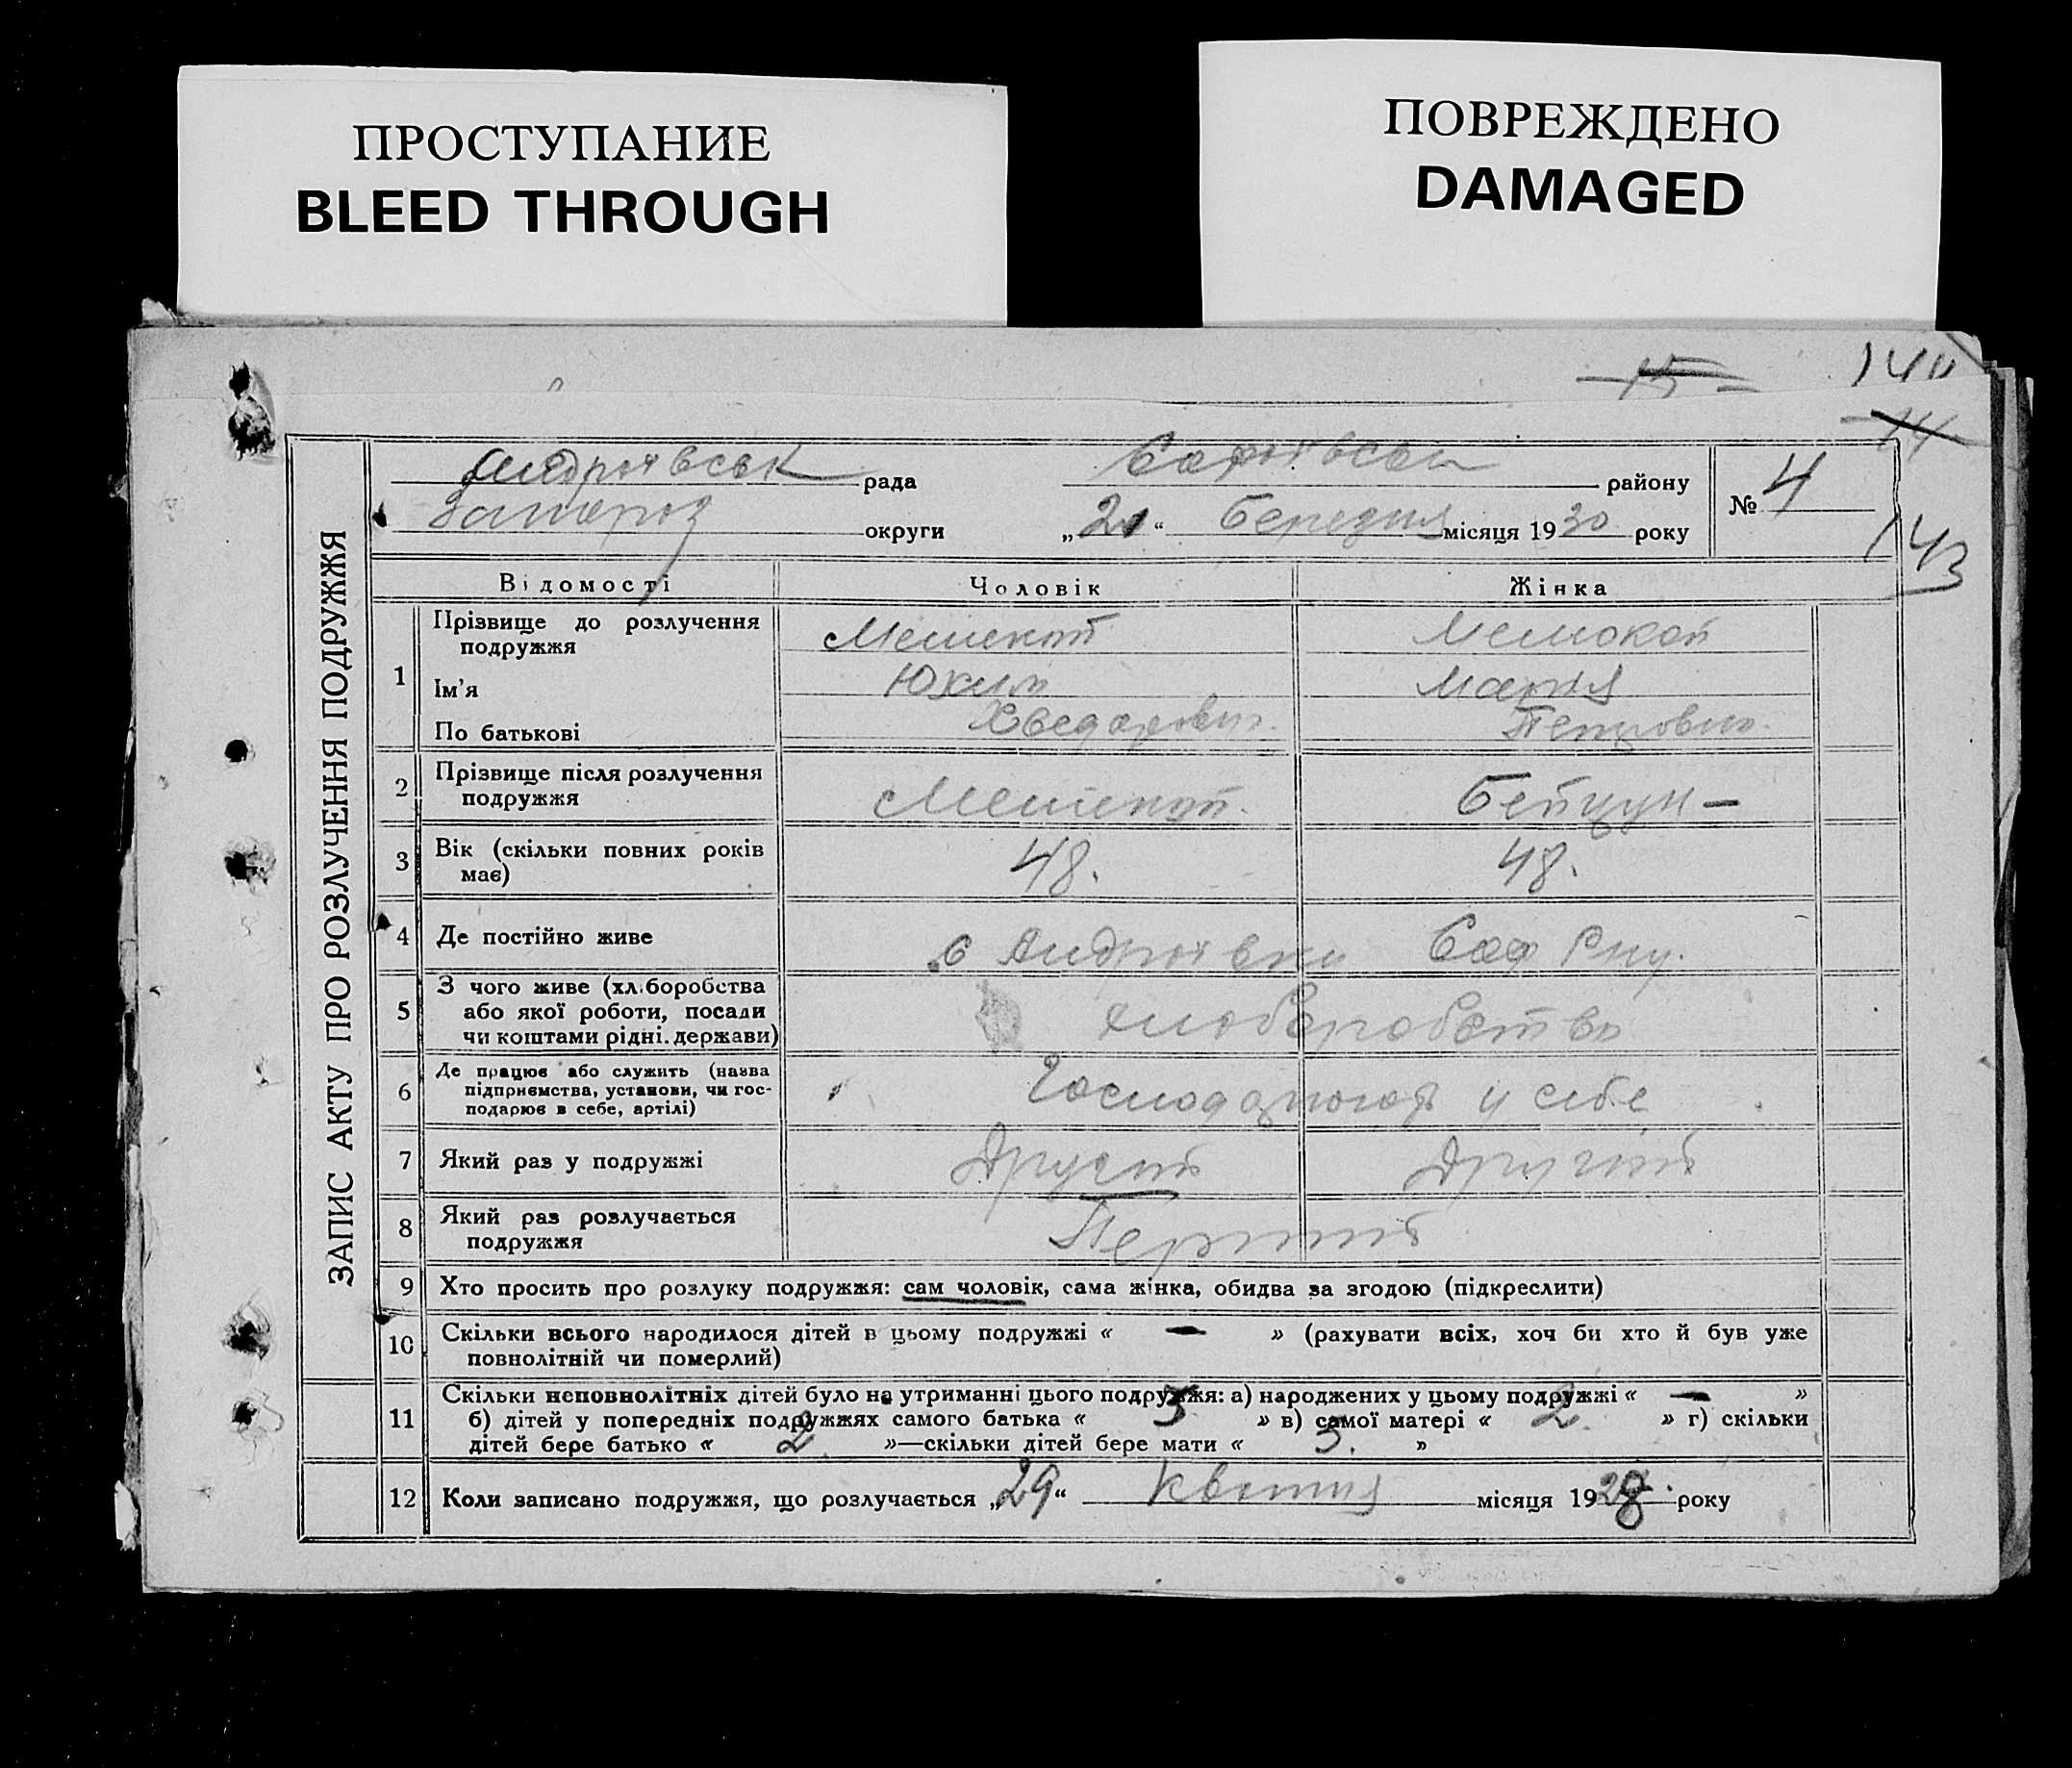 ПРОСТУПАНИЕ
BLEED THROUGH
ПОВРЕЖДЕНО
DAMAGED
15
14
ЗАПИС АКТУ ПРО РОЗЛУЧЕННЯ ПОДРУЖЖЯ
рада району
№ 4
округи „ “ Березня місяця 1930 року
143
Відомості Чоловік Жінка
1 Прізвище до розлучення
подружжя
Ім'я Юхим Марія
По батькові Хведорович. Петровна.
2 Прізвище після розлучення
подружжя
3 Вік (скільки повних років 48. 48.
має)
4 Де постійно живе с Андріївки
5 З чого живе (хл.боробства
або якої роботи, посади
чи коштами рідні. держави)
6 Де працює або служить (назва
підприємства, установи, чи гос-
подарює в себе, артілі) у себе
7 Який раз у подружжі Другий Другий
8 Який раз розлучається
подружжя
9 Хто просить про розлуку подружжя: сам чоловік, сама жінка, обидва за згодою (підкреслити)
10 Скільки всього народилося дітей в цьому подружжі « — » (рахувати всіх, хоч би хто й був уже
повнолітній чи померлий)
11 Скільки неповнолітніх дітей було на утриманні цього подружжя: а) народжених у цьому подружжі « — »
б) дітей у попередніх подружжях самого батька « » в) самої матері « 2. » г) скільки
дітей бере батько « 2. »—скільки дітей бере мати « »
12 Коли записано подружжя, що розлучається „29“ Квітня місяця 19 року